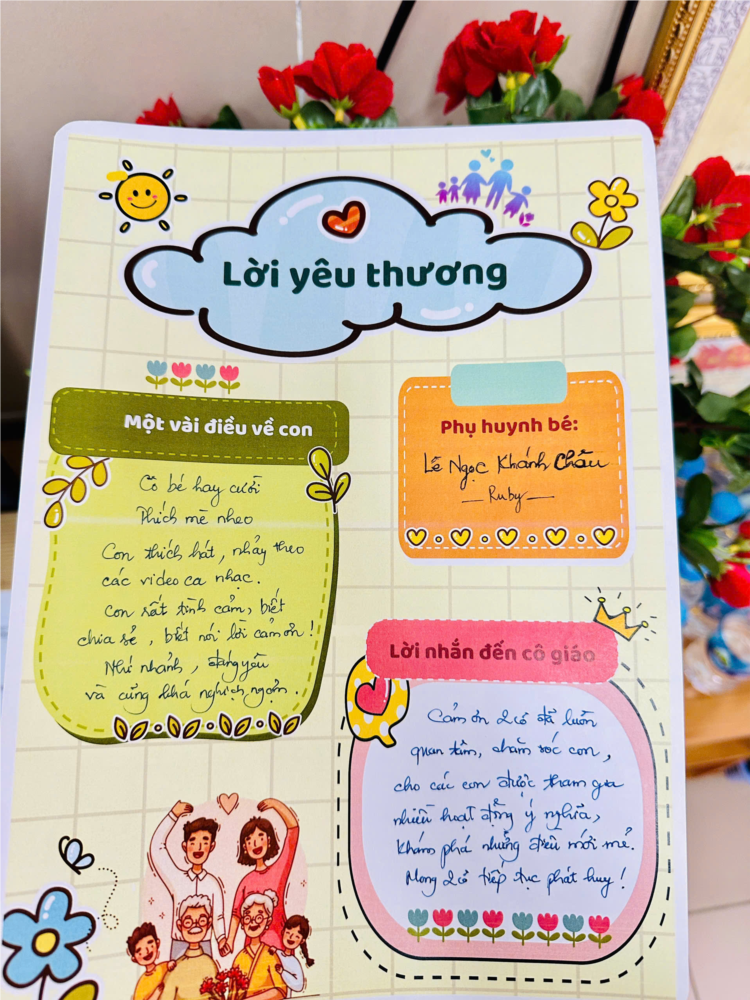 Lời yêu thương
Một vài điều về con
Cô bé hay cười
Thích mè nheo
Con thích hát, nhảy theo
các video ca nhạc.
Con rất tình cảm, biết
chia sẻ, biết nói lời cảm ơn!
Nhí nhảnh, đáng yêu
và cũng khá nghịch ngợm.
Phụ huynh bé:
Lê Ngọc Khánh Châu
— Ruby —
Lời nhắn đến cô giáo
Cảm ơn 2 cô đã luôn
quan tâm, chăm sóc con,
cho các con được tham gia
nhiều hoạt động ý nghĩa,
khám phá những điều mới mẻ.
Mong 2 cô tiếp tục phát huy!